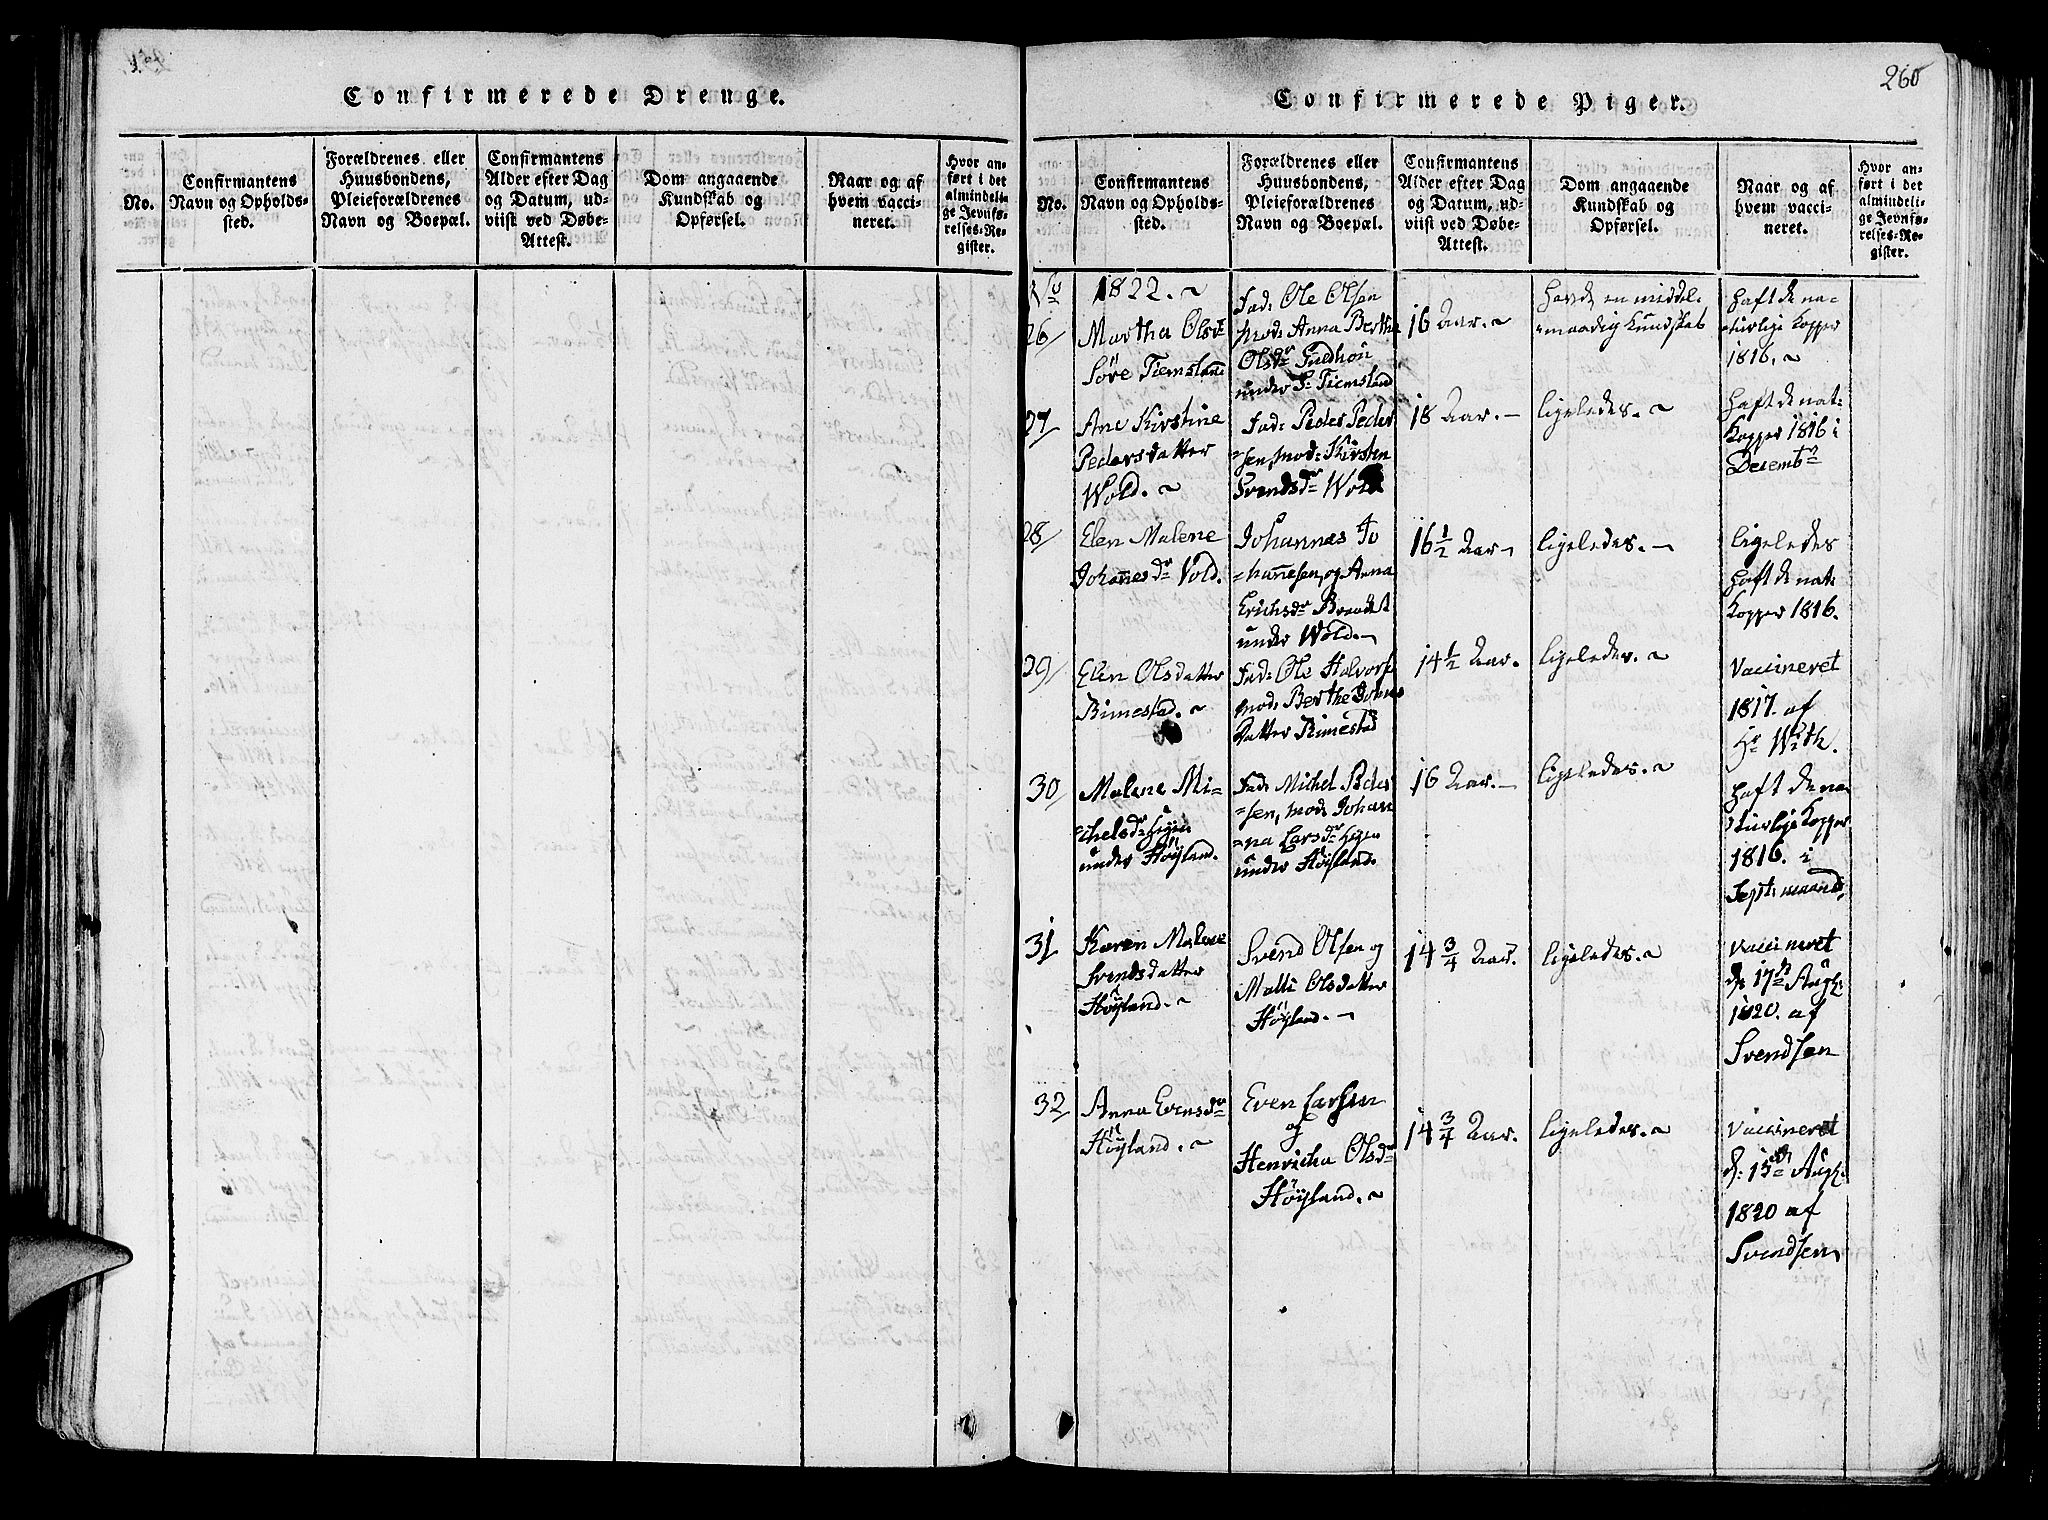 Confirmerede Drenge.
No.
Confirmantens
Navn og Opholds-
sted.
Forældrenes eller
Huusbondens,
Pleieforældrenes
Navn og Boepæl.
Confirmantens
Alder efter Dag
og Datum, ud-
viist ved Døbe-
Attest.
Dom angaaende
Kundskab og
Opførsel.
Naar og af
hvem vacci-
neret.
Hvor an-
ført i det
almindeli-
ge Jevnfø-
relses-Re-
gister.
260
Confirmerede Piger.
No.
Confirmantens
Navn og Opholds-
sted.
Forældrenes eller
Huusbondens,
Pleieforældrenes
Navn og Boepæl.
Confirmantens
Alder efter Dag
og Datum, ud-
viist ved Døbe-
Attest.
Dom angaaende
Kundskab og
Opførsel.
Naar og af
hvem vacci-
neret.
Hvor an-
ført i det
almindeli-
ge Jevnfø-
relses-Re-
gister.
1822.
26
Martha Olsdr
Söre Tiemsland
Fad: Ole Olsen
mod: Anna Bertha
Olsdr
under S: Tiemsland
16 Aar.
Havde en middel-
maadig Kundskab
haft de na-
turlige Kopper
1816.
27
Ane Kirstine
Pedersdatter
Wold.
Fad: Peder Peder
=sen, mod: Kirsten
Svendsdr Wold
18 Aar.
ligeledes.
haft de nat:
Kopper 1816 i
Decembr
28
Elen Malene
Johannesdr Vold.
Johannes Jo
=hannesen, og Anna
Erichsdr Braadet
under Wold.
16 1/2 Aar
ligeledes.
ligeledes
haft de nat:
Kopper 1816.
29
Elen Olsdatter
Rimestad.
Fad: Ole Halvors
mod: Berthe Johns
Datter Rimestad
14 1/2 Aar.
ligeledes.
Vaccineret
1817. af
Hr With.
30
Malene Mi-
chelsdr Hejen
under Höyland.
Fad: Michel Peder
=sen, mod: Johan
=na Larsdr Hejen
under Höyland.
16 Aar.
ligeledes.
haft de na-
turlige Kopper
1816. i
Sept: maand.
31
Karen Malene
Svendsdatter
Höyland.
Svend Olsen og
Malli Olsdatter
Höyland.
14 3/4 Aar.
ligeledes.
Vaccineret
d: 17de Augs:
1820. af
Svendsen
32
Anna Evensdr
Höyland.
Even Larsen
og
Henricha Olsdr
Höyland.
14 3/4 Aar.
ligeledes.
Vaccineret
d: 15de Augs:
1820 af
Svendsen